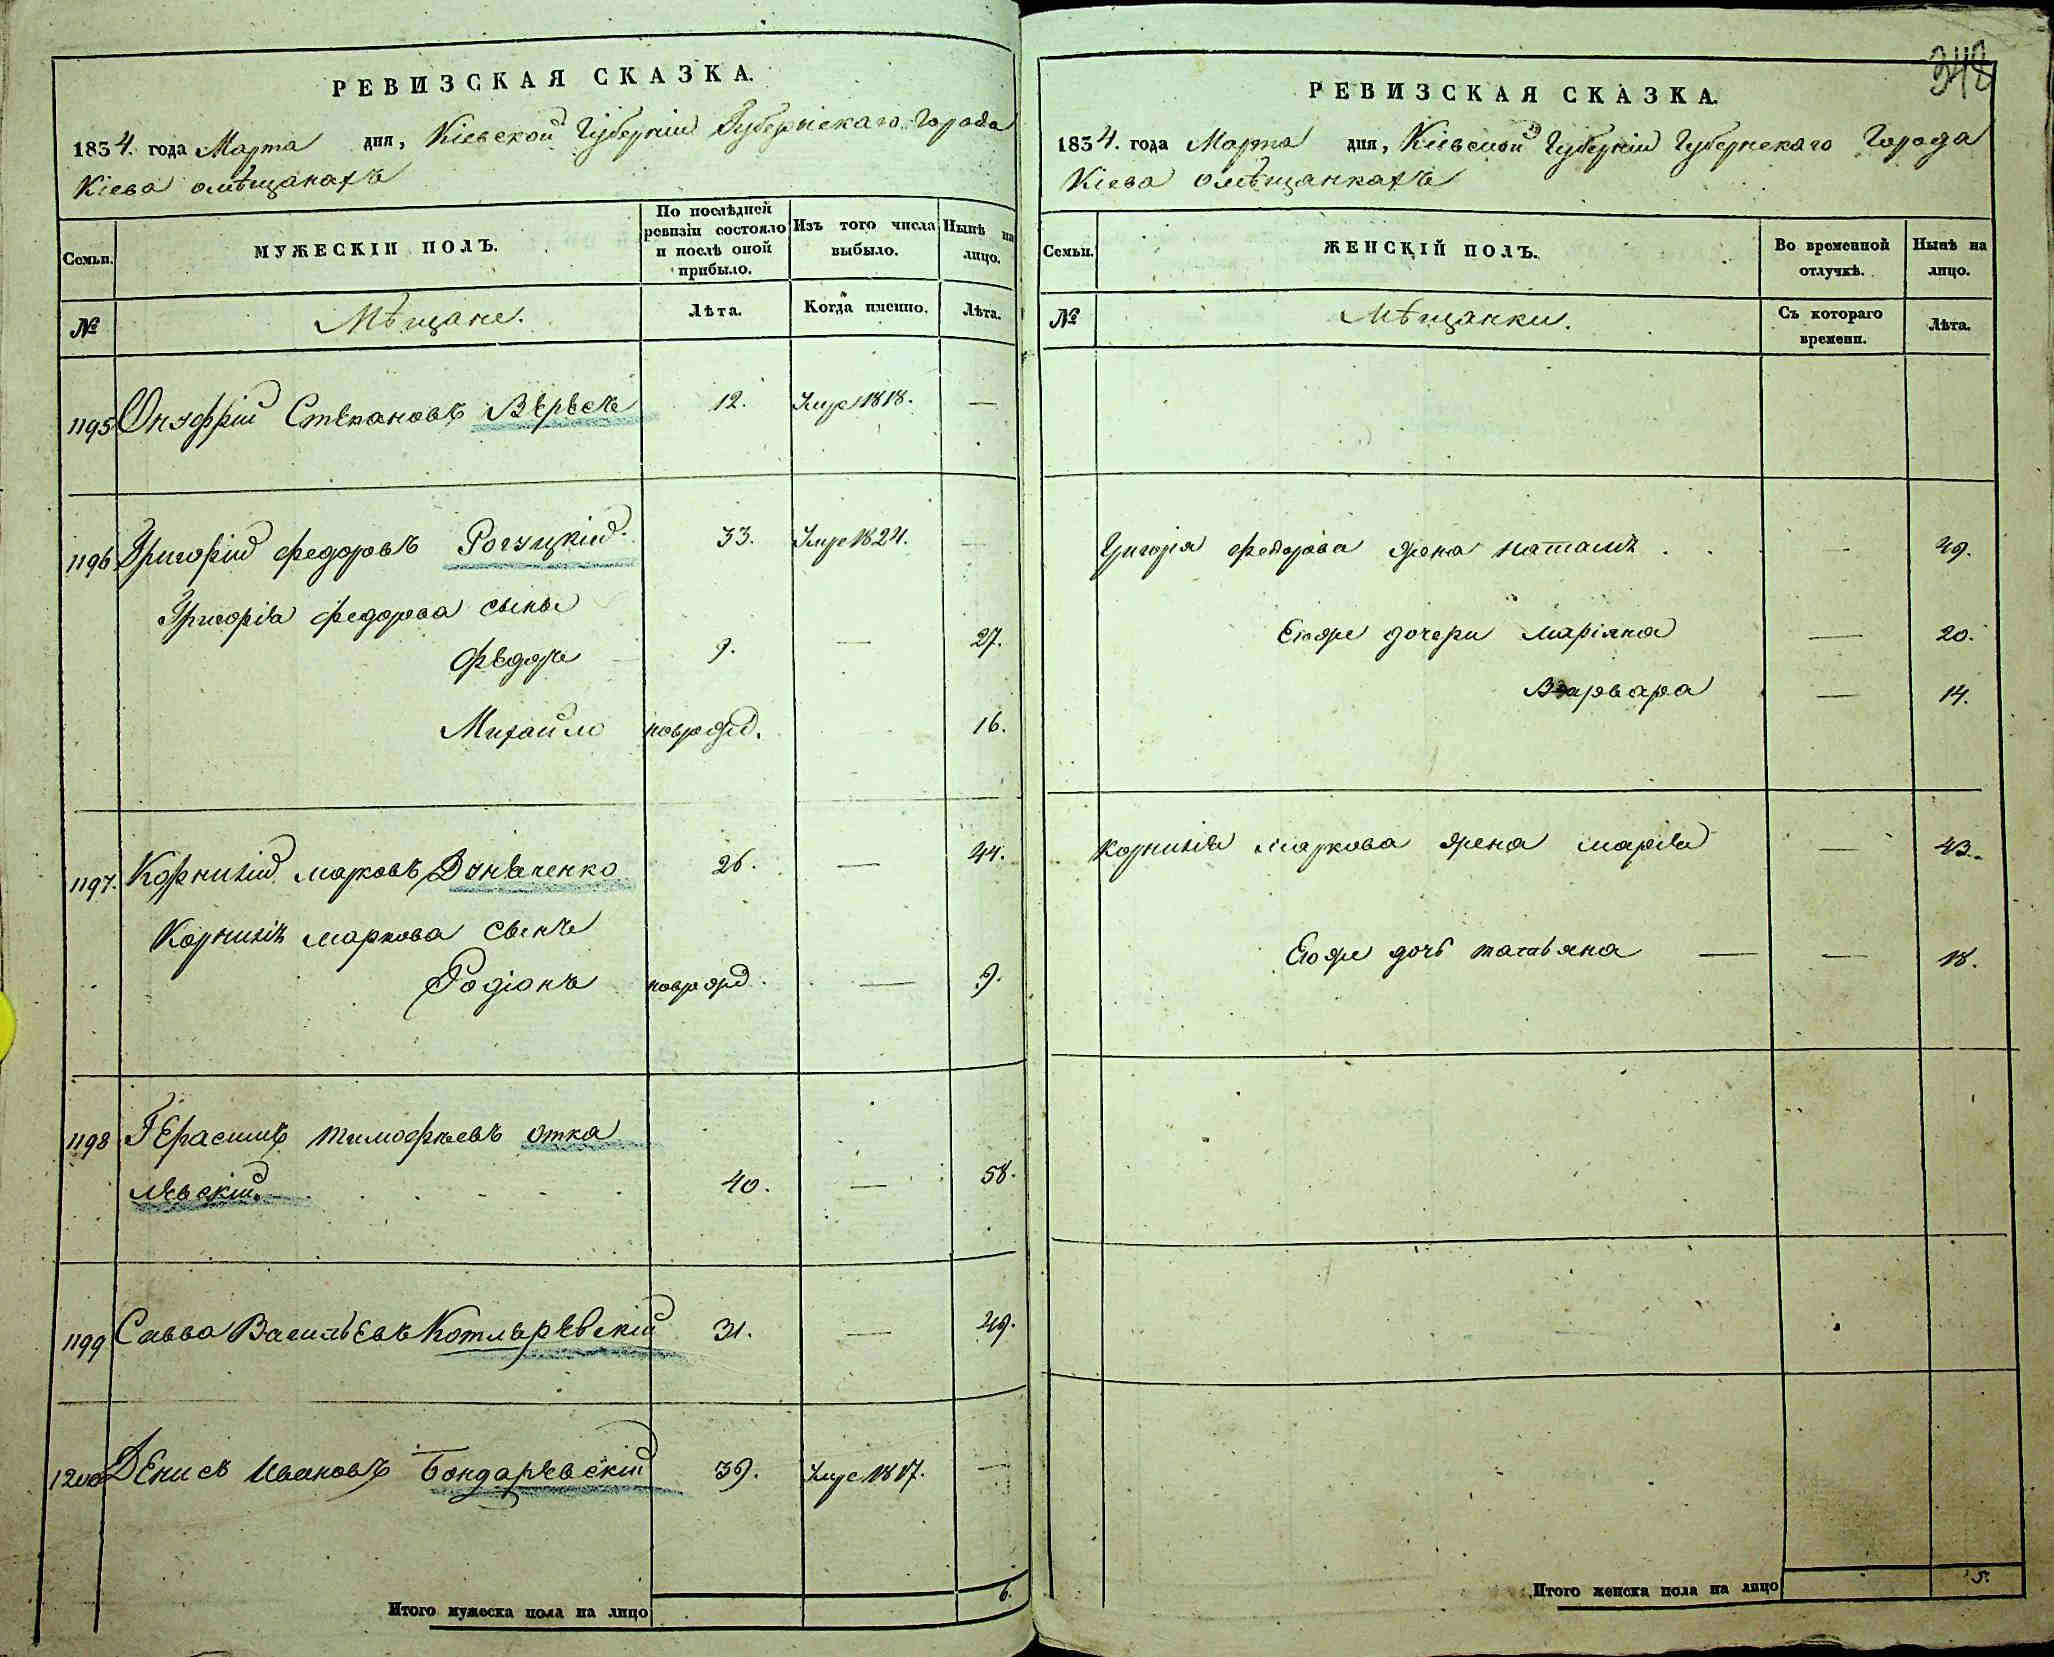 РЕВИЗСКАЯ СКАЗКА.
1834. года Марта дня, Кіевской Губерніи Губернскаго Города
Кіева омѣщанахъ
Семьи.
МУЖЕСКІЙ ПОЛЪ.
По послѣдней
ревизіи состояло
и послѣ оной
прибыло.
Изъ того числа
выбыло.
Нынѣ на
лицо.
№
Мѣщане.
Лѣта.
Когда именно.
Лѣта.
1195 Онуфрій Степановъ 12. Умре 1818. —
1196 Григорій Федоровъ Рогуцкій. 33. Умре 1824. —
Григорія Федорова сыны
Федоръ 9. — 27.
Михайло новрожд. 16.
1197. Корнилій Марковъ 26. — 44.
Корнилія Маркова сынъ
Родіонъ новрожд. — 9.
1198 Герасимъ Тимофѣевъ Отка
левскій. 40. — 58.
1199 Савва Васильевъ Котляревскій 31. — 49.
1200 Денисъ Ивановъ Бондаревскій 39. Умре 1817. —
Итого мужеска пола на лицо 6.
348
РЕВИЗСКАЯ СКАЗКА.
1834. года Марта дня, Кіевской Губерніи Губернскаго Города
Кіева омѣщанкахъ
Семьи.
ЖЕНСКІЙ ПОЛЪ.
Во временной
отлучкѣ.
Нынѣ на
лицо.
№
Мѣщанки.
Съ котораго
времени.
Лѣта.
Григорія Федорова жена — 49.
Егоже дочери Маріяна — 20.
Варвара — 14.
Корнилія Маркова жена Марія — 43.
Егоже дочь Татьяна — — 18.
Итого женска пола на лицо 5.